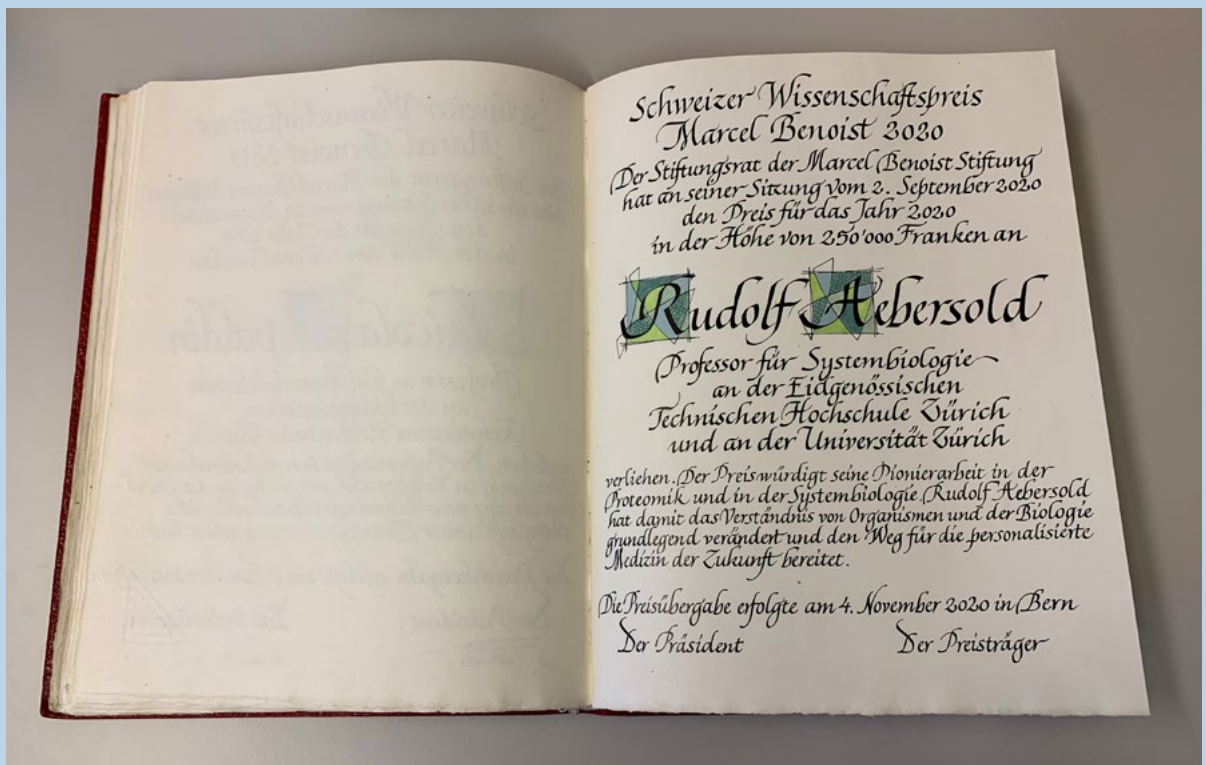 Schweizer Wissenschaftspreis
Marcel Benoist 2020
Der Stiftungsrat der Marcel Benoist Stiftung
hat an seiner Sitzung vom 2. September 2020
den Preis für das Jahr 2020
in der Höhe von 250'000 Franken an
Rudolf Aebersold
Professor für Systembiologie
an der Eidgenössischen
Technischen Hochschule Zürich
und an der Universität Zürich
verliehen. Der Preis würdigt seine Pionierarbeit in der
Proteomik und in der Systembiologie. Rudolf Aebersold
hat damit das Verständnis von Organismen und der Biologie
grundlegend verändert und den Weg für die personalisierte
Medizin der Zukunft bereitet.
Die Preisübergabe erfolgte am 4. November 2020 in Bern
Der Präsident
Der Preisträger